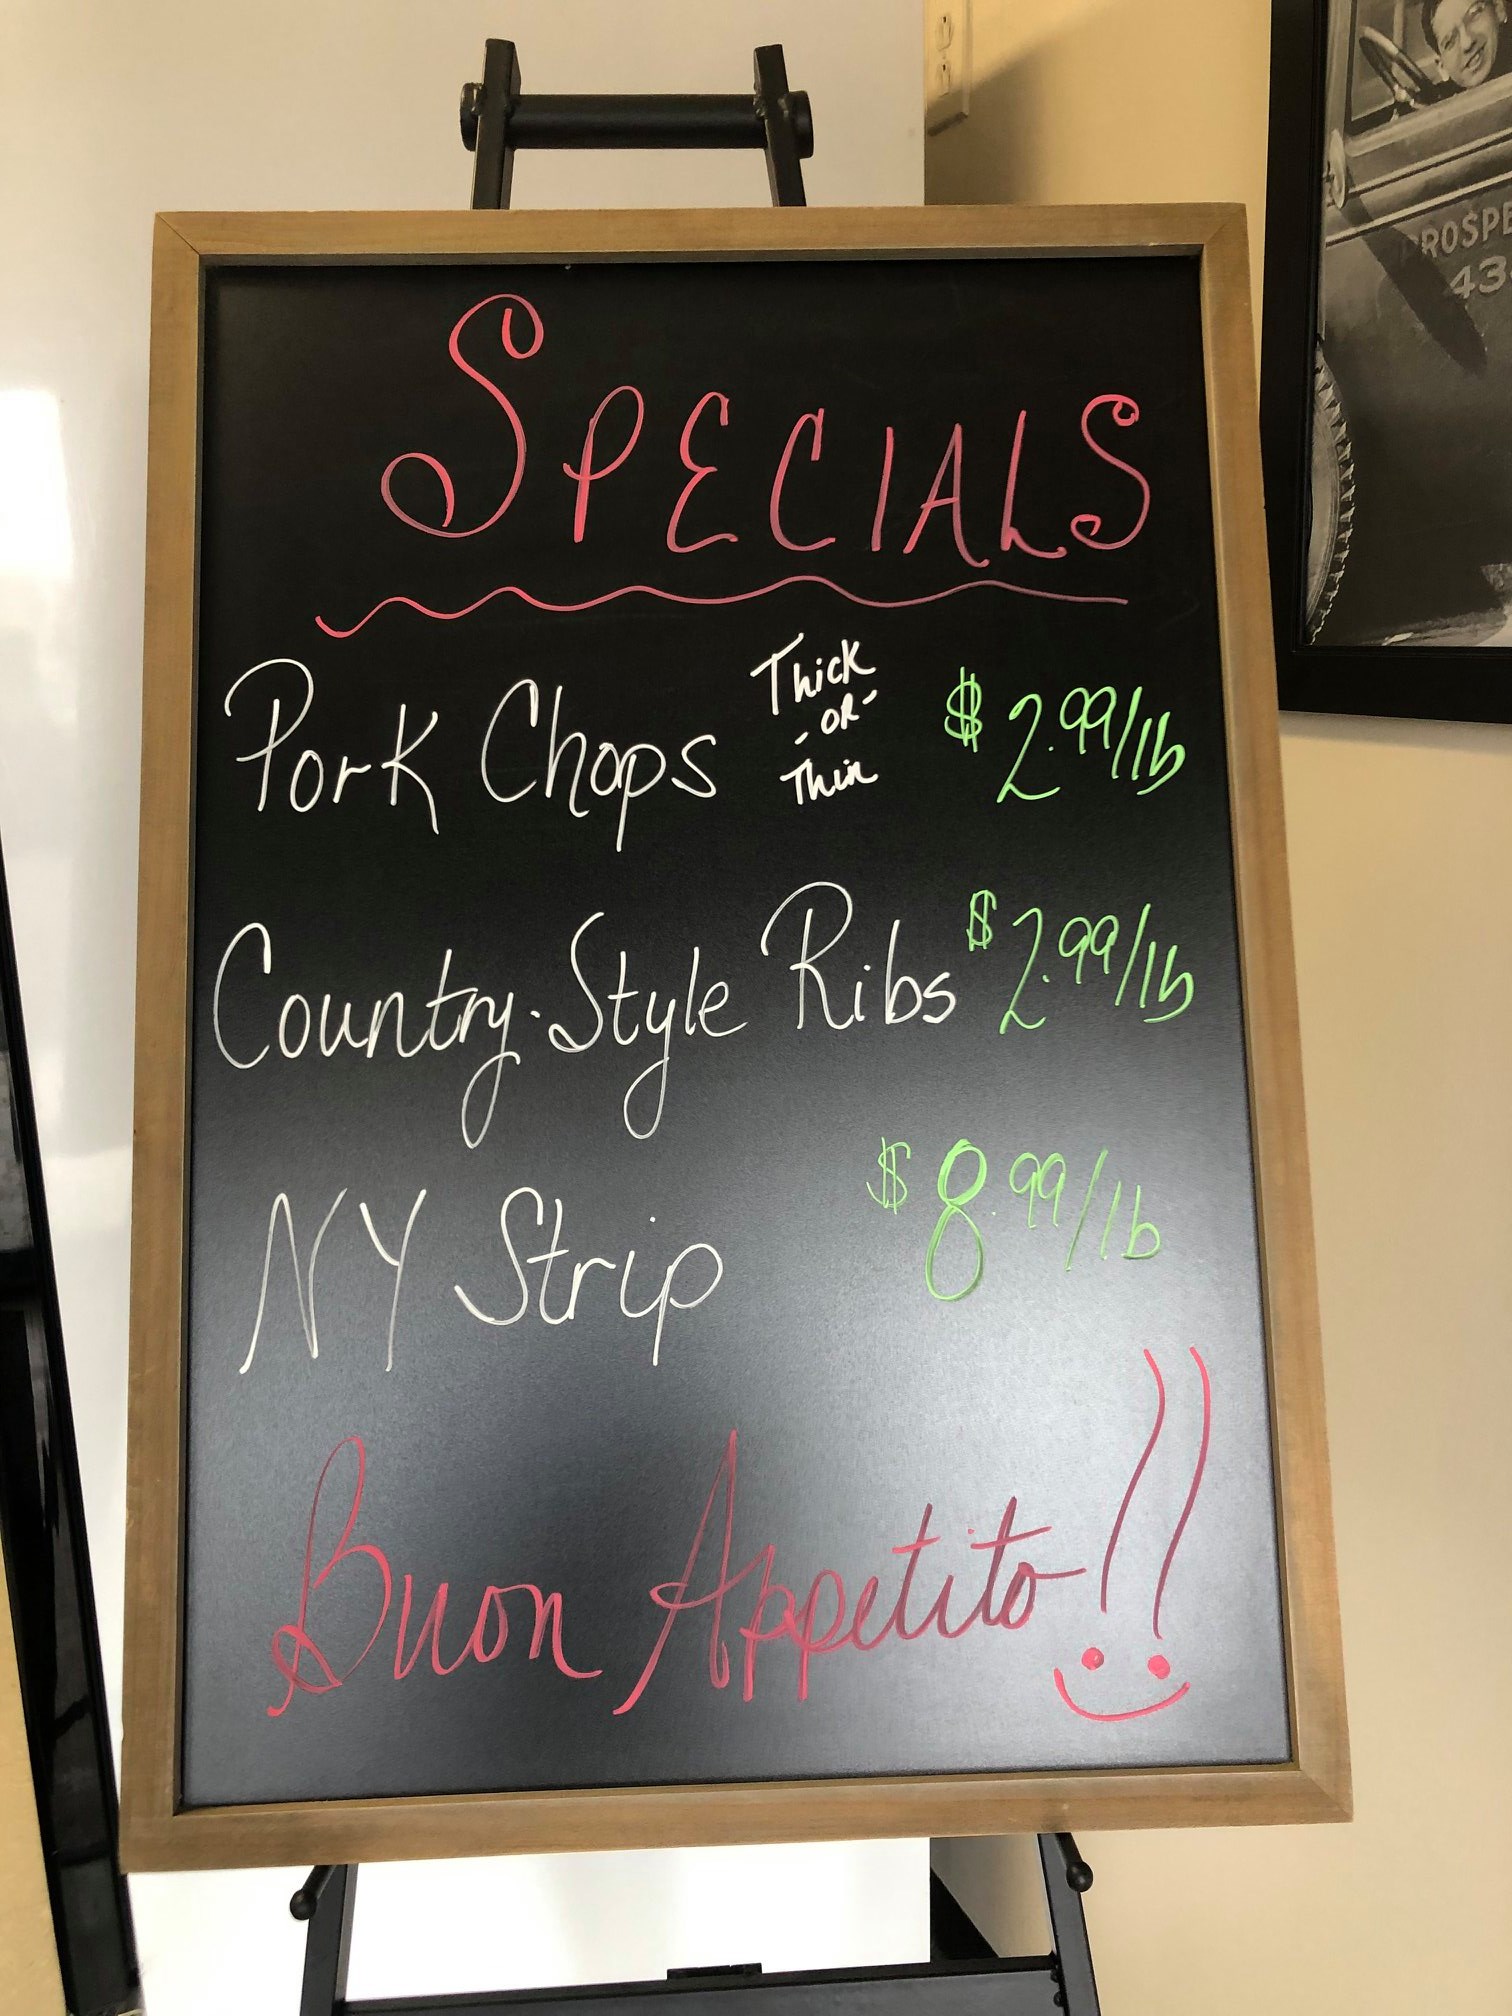 SPECIALS
Pork Chops Thick -OR- Thin $2.99/lb
Country-Style Ribs $2.99/lb
NY Strip $8.99/lb
Buon Appetito!!